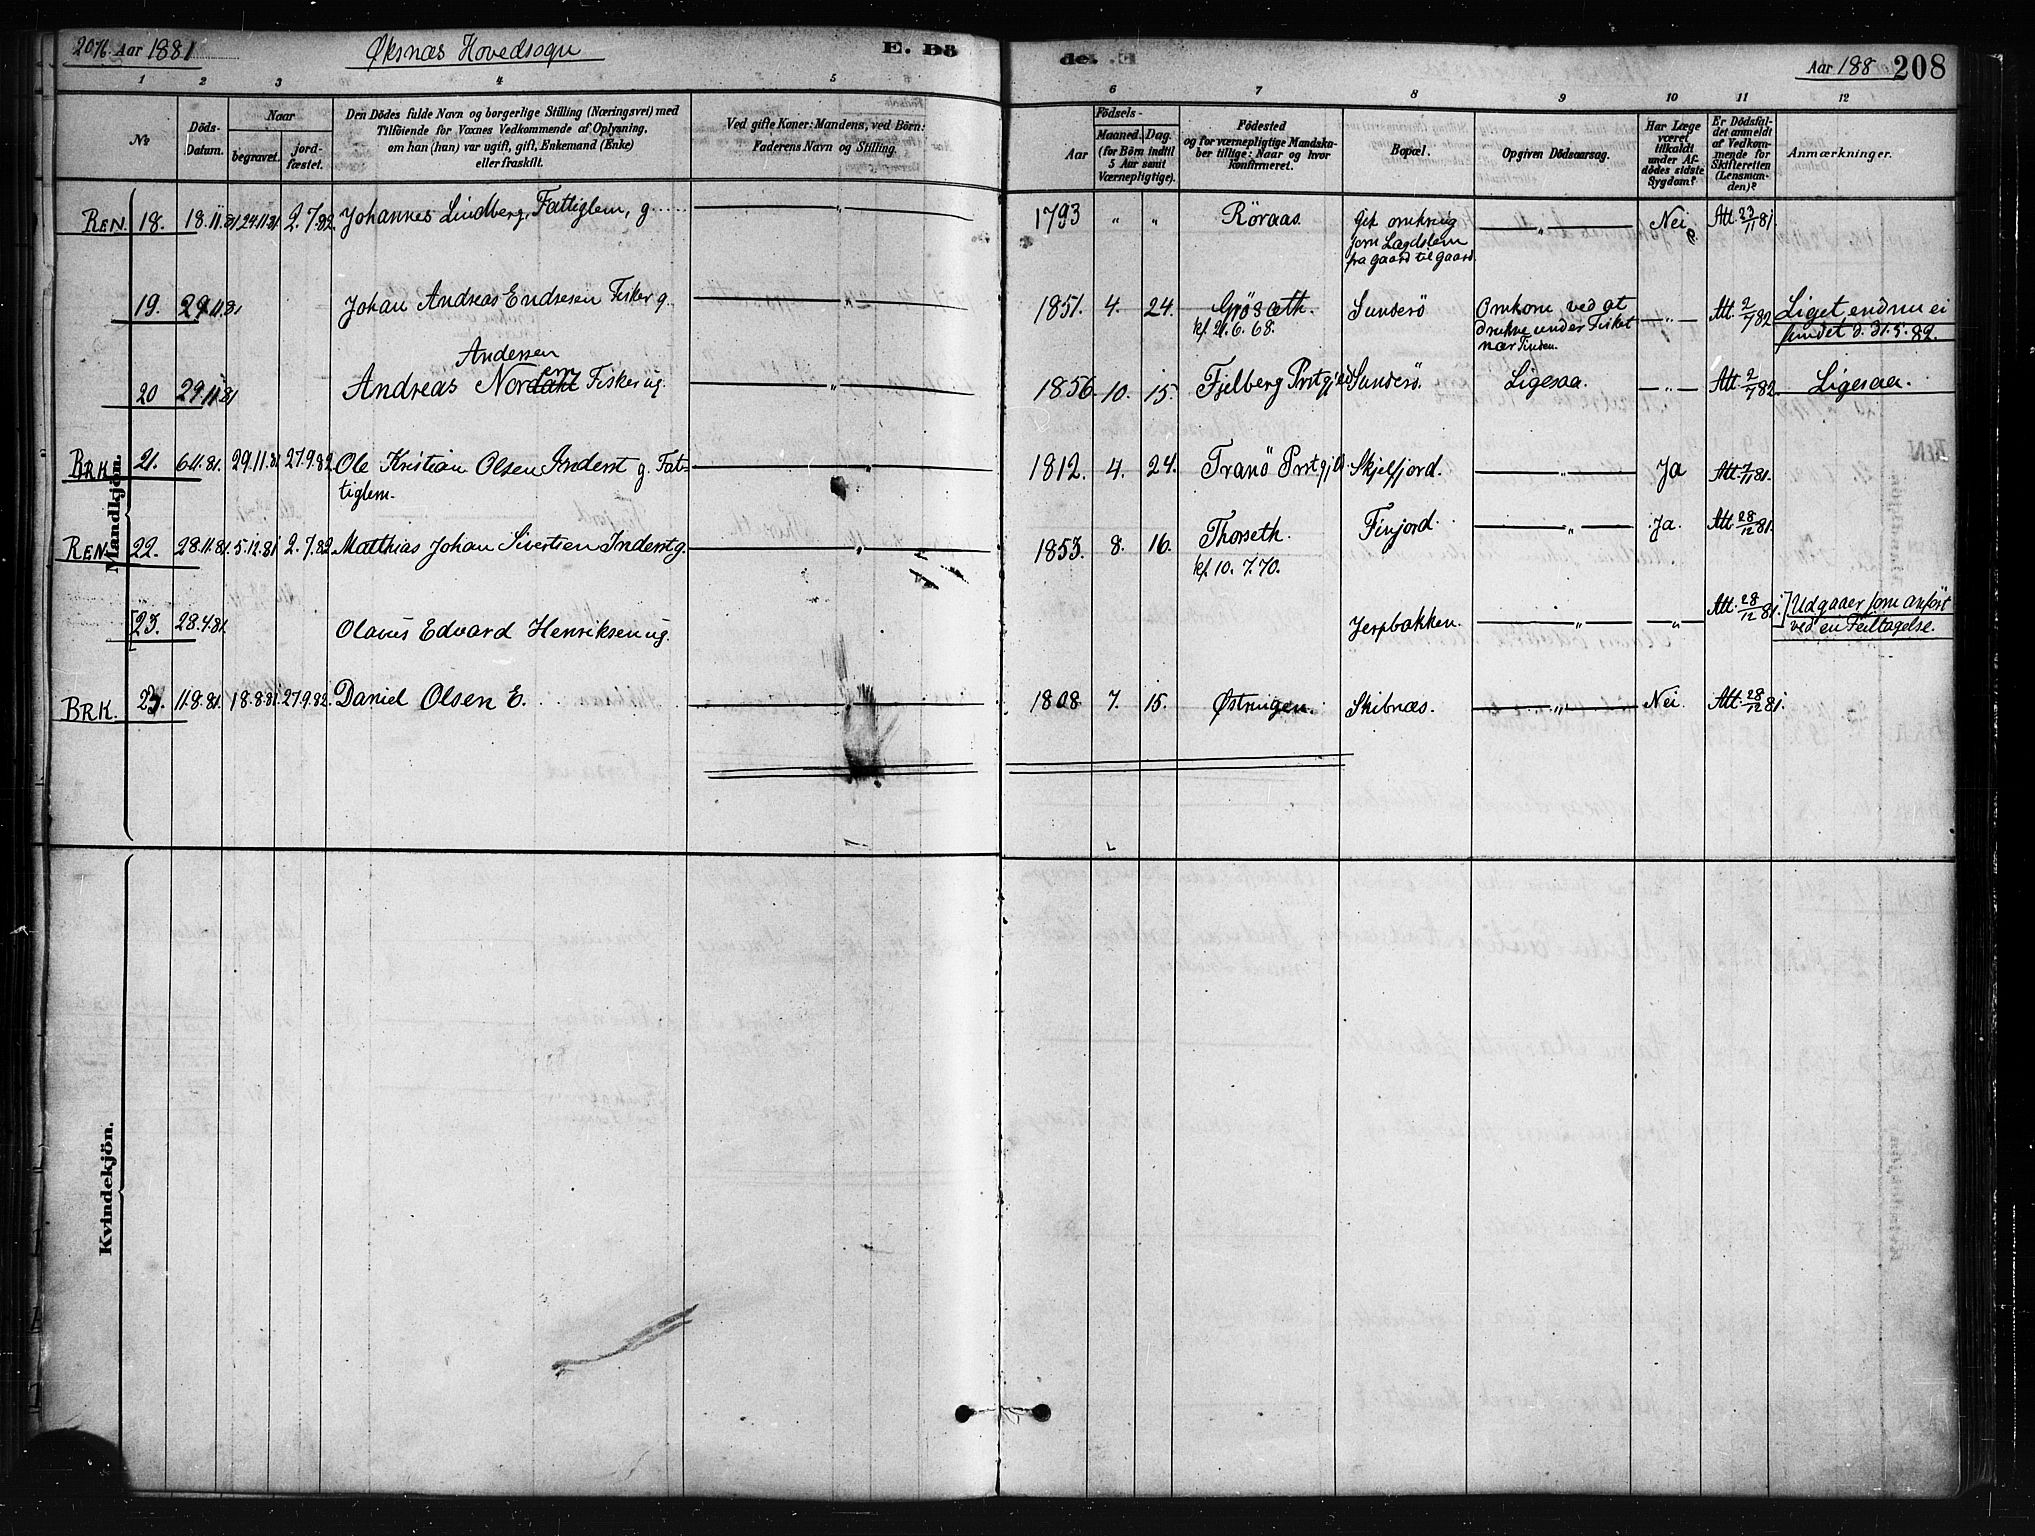 2076 Aar 1881 Øksnæs Hovedsogn E. Dö de. E Aar 188 208
1 2 3 4 5 6 7 8 9 10 11 12
No Döds-Datum. Naar begravet. jord-fæstet. Den Dödes fulde Navn og borgerlige Stilling (Næringsvei) med
Tilföiende for Voxnes Vedkommende af Oplysning,
om han (hun) var ugift, gift, Enkemand (Enke)
eller fraskilt.
Ved gifte Koner: Mandens, ved Börn:
Faderens Navn og Stilling.
Födsels-
Aar Maaned. Dag.
(for Börn indtil
5 Aar samt
Værnepligtige).
Födested
og for værnepligtige Mandska-
ber tillige: Naar og hvor
konfirmeret.
Bopæl.
Opgiven Dödsaarsag.
Har Læge
været
tilkaldt
under Af-
dödes sidste
Sygdom?
Er Dödsfal-
det anmeldt
af Vedkom-
mende for
Skifteretten
(Lensman-
den)?
Anmærkninger.
Mandkjön.
REN. 18. 18.11.81 24.11.81 2.7.82. Johannes Lindberg, Fattiglem, g. " 1793 " " Röraas. gik omkring
som Lægdslem
fra gaard til gaard. " Nei Att. 23/11 81.
19. 29.11.81 Johan Andreas Endresen Fisker g. " 1851. 4. 24. kf. 21.6.68. Sunderö Omkom ved at
drukne under Fisket
nær Tinden. " Att. 2/1 82 Liget endnu ei
fundet d. 31.5.82.
Andersen
20 29.11.81 Andreas Nordahl Fisker ug. " 1856. 10. 15. Fjelberg Prstgjeld Sunderö. Ligesaa. " Att. 2/1 82. Ligesaa.
BRK. 21. 6.11.81. 29.11.81 27.9.82. Ole Kristian Olsen Inderst g. Fat-
tiglem. " 1812. 4. 24. Tranö Prstgjld Skjelfjord. " Ja Att. 7/11 81.
REN. 22. 28.11.81. 5.12.81 2.7.82 Matthias Johan Sivertsen Inderst g. " 1853. 8. 16. Thorseth.
kf. 10. 7.70. Finjord. " Ja. Att. 28/12 81.
[23. 28.4.81. Olaus Edvard Henriksen ug. Jerpbakken. " " Att. 28/12 81.] Udgaaer som anfört
ved en Feiltagelse.
BRK. 23. 11.8.81. 18.8.81 27.9.82. Daniel Olsen E. " 1808 7. 15. Østringen. Skibnæs. " Nei. Att. 28/12 81.
Kvindekjön.